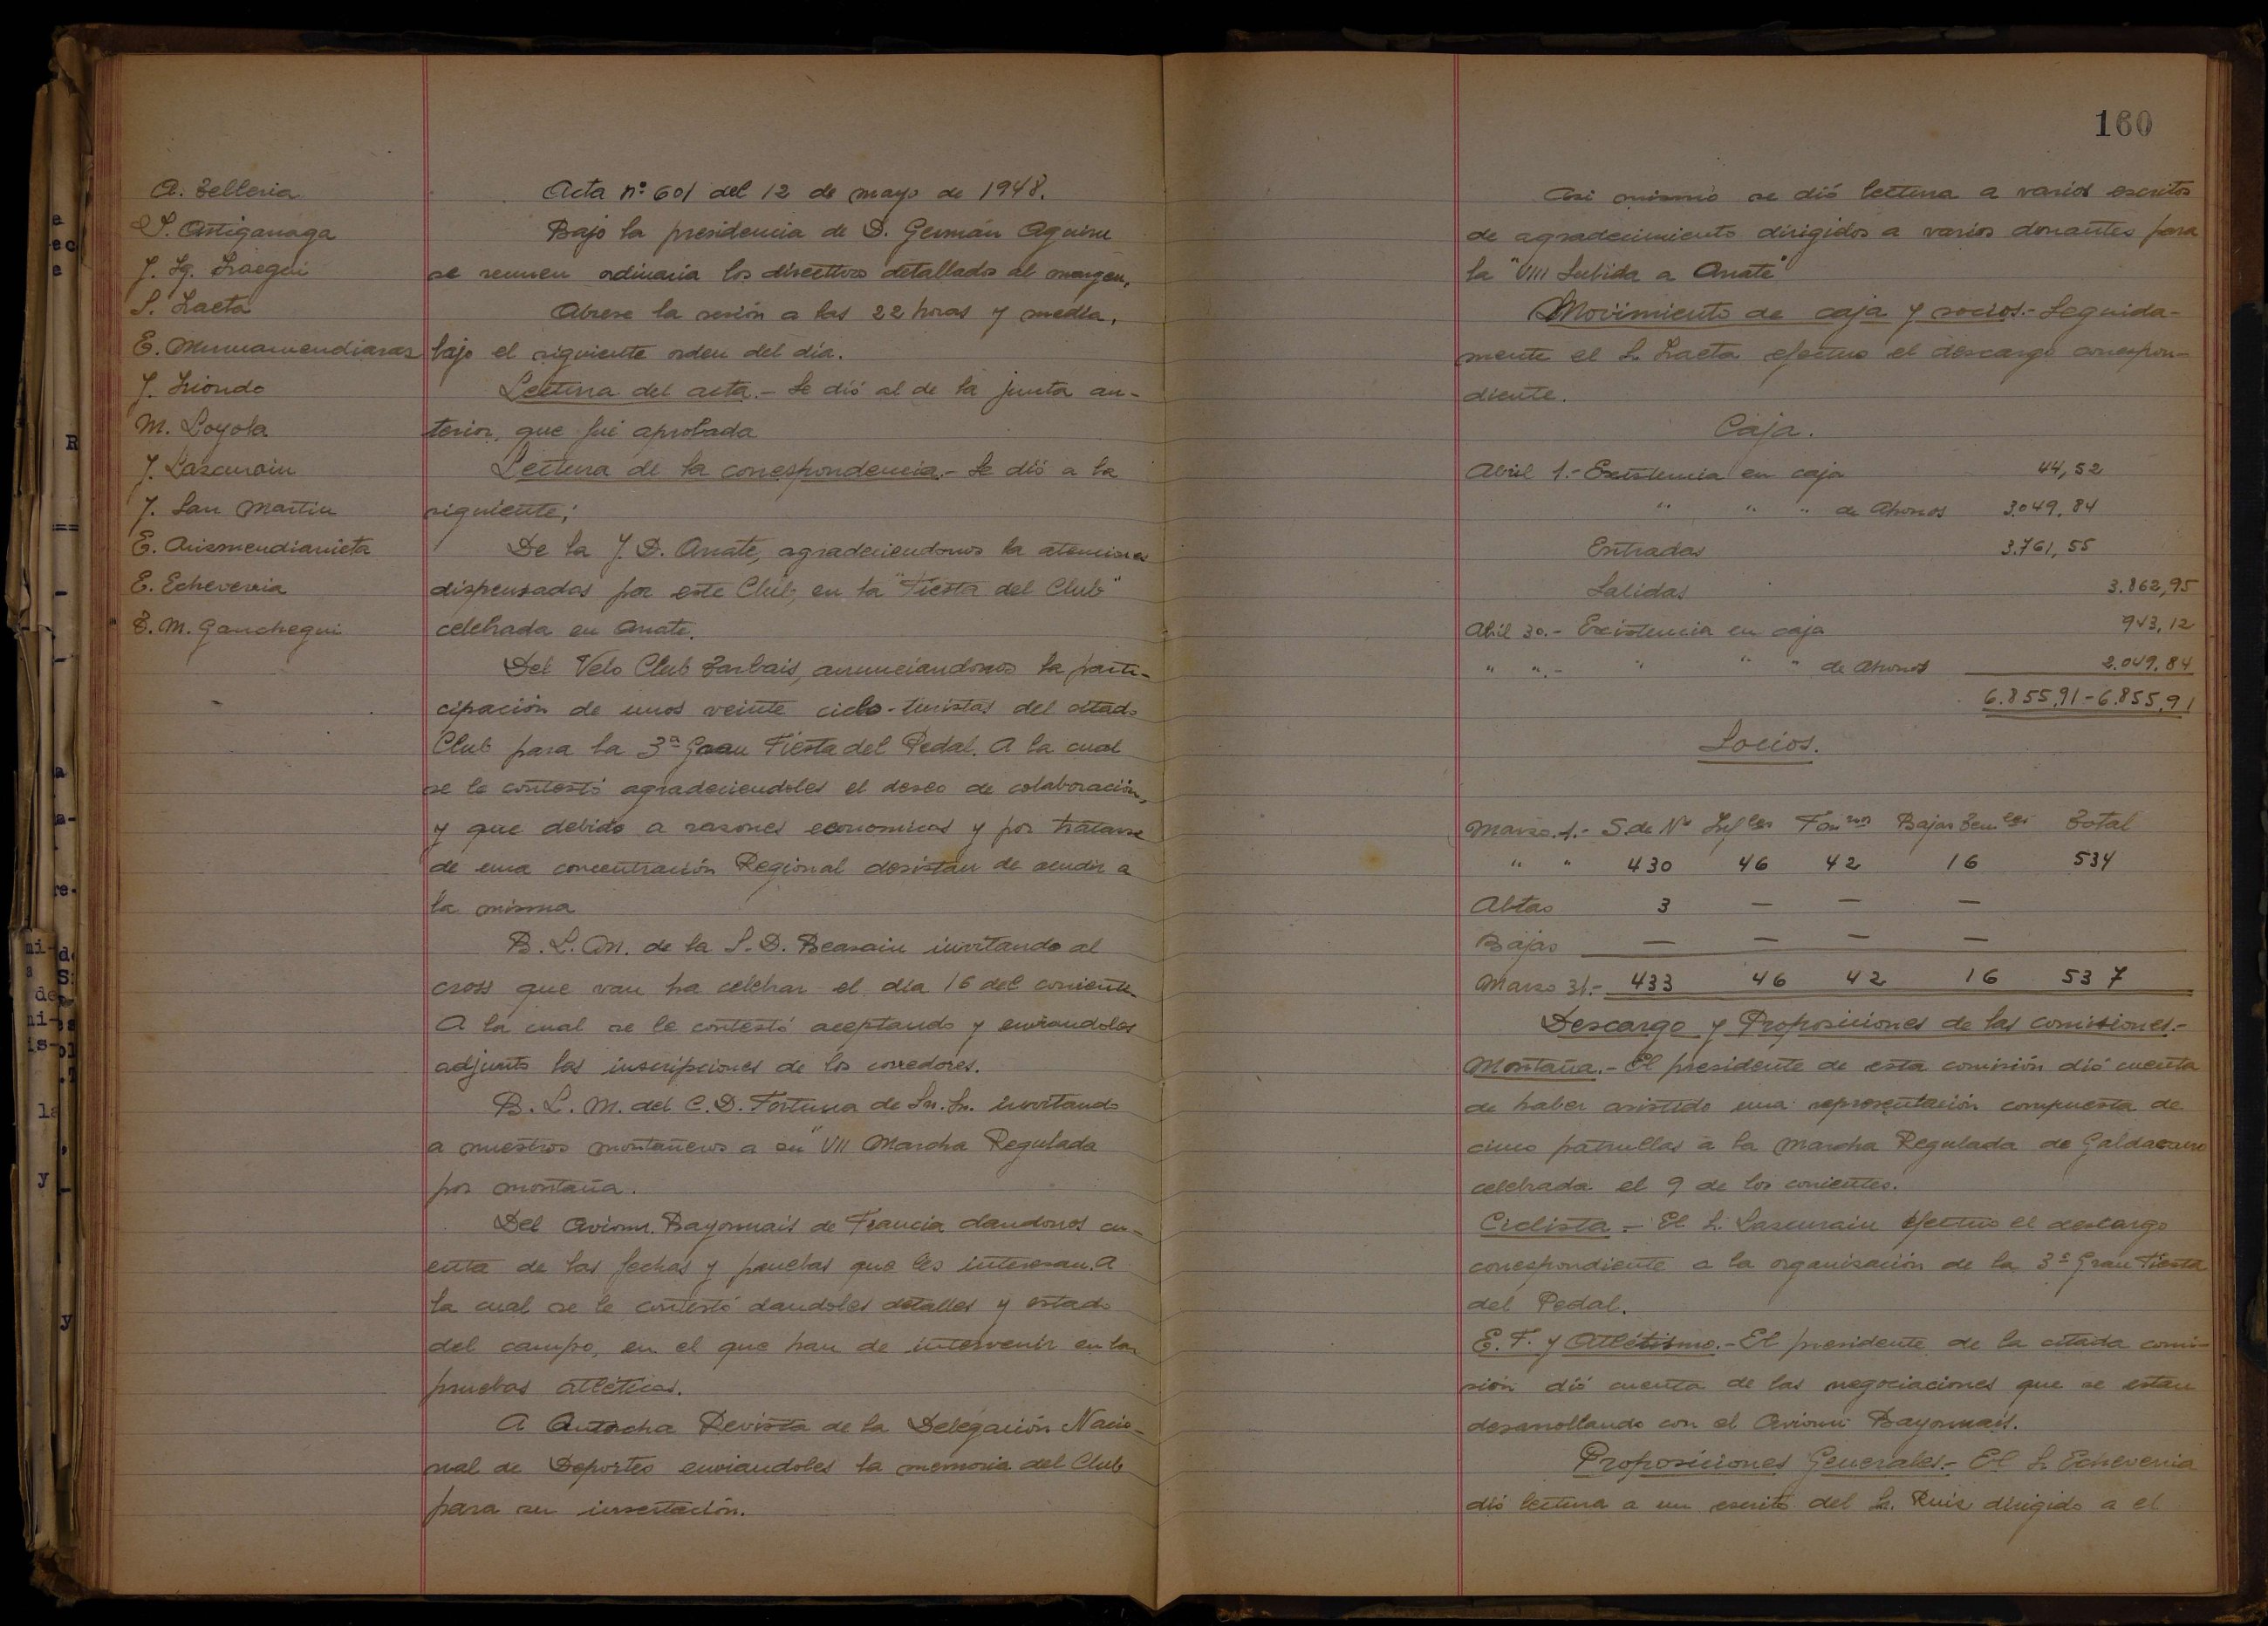 A. Telleria
J. Astigarraga
J. Ig. Iraegui
S. Izaeta
E. Munuamendiaras
J. Iriondo
M. Loyola
J. Lascurain
J. San Martin
E. Arismendiarrieta
E. Echeverria
E. M. Ganchegui
Acta nº 601 del 12 de mayo de 1948.
Bajo la presidencia de D. Germán Aguirre
se reunen ordinaria los directivos detallados al margen,
Abrese la sesión a las 22 horas y media,
bajo el siguiente orden del día.
Lectura del acta.- Se dió al de la junta an-
terior, que fué aprobada
Lectura de la correspondencia.- Se dió a la
siguiente;
De la J. D. Oñate, agradeciendonos la atenciones
dispensadas por este Club, en la "Fiesta del Club"
celebrada en Oñate.
Del Velo Club Tarbais, anunciandonos la parti-
cipación de unos veinte ciclo-turistas del citado
Club para la 3ª Gran Fiesta del Pedal. A la cual
se le contestó agradeciendoles el deseo de colaboración,
y que debido a razones economicas y por tratarse
de una concentración Regional desistan de acudir a
la misma
B. L. M. de la S. D. Beasain invitando al
cross que van ha celebrar el día 16 del corriente
A la cual se le contestó aceptando y enviandoles
adjunto las inscripciones de los corredores.
B. L. M. del C. D. Fortuna de Sn. Sn. invitando
a nuestros montañeros a su "VII Marcha Regulada
por montaña.
Del Aviron Bayonnais de Francia dandonos cu-
enta de las fechas y pruebas que les interesan. A
la cual se le contestó dandoles detalles y estado
del campo, en el que han de intervenir en las
pruebas atléticas.
A Antorcha Revista de la Delegación Nacio-
nal de Deportes enviandoles la memoria del Club
para su insertación.
160
Asi mismo se dió lectura a varios escritos
de agradecimiento dirigidos a varios donantes para
la "VIII Subida a Oñate"
Movimiento de caja y socios.- Seguida-
mente el S. Izaeta efectuo el descargo correspon-
diente.
Caja.
Abril 1.- Existencia en caja 44,52
" " " de Ahorros 3.049,84
Entradas 3.761,55
Salidas 3.862,95
Abril 30.- Existencia en caja 943,12
" ".- " " " de Ahorros 2.049,84
6.855,91-6.855,91
Socios.
Marzo.1.- S. de Nº Inf les Fem nos Bajas Tem les Total
" " 430 46 42 16 534
Altas 3 — — —
Bajas — — — —
Marzo 31.- 433 46 42 16 537
Descargo y Proposiciones de las comisiones.-
Montaña.- El presidente de esta comisión dió cuenta
de haber asistido una representación compuesta de
cinco patrullas a la Marcha Regulada de Galdacano
celebrada el 9 de los corrientes.
Ciclista.- El S. Lascurain efectuo el descargo
correspondiente a la organización de la 3ª Gran Fiesta
del Pedal.
E. F. y Atletismo.- El presidente de la citada comi-
sión dió cuenta de las negociaciones que se estan
desarrollando con el Aviron Bayonnais.
Proposiciones Generales.- El S. Echeverria
dió lectura a un escrito del Sr. Ruiz dirigido a el